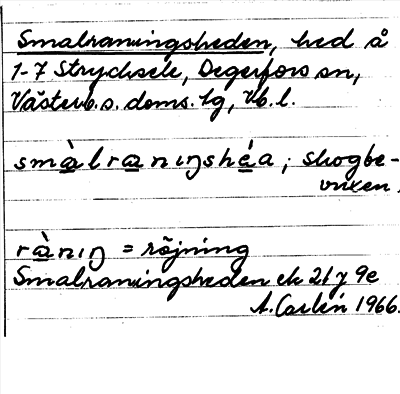 Smalraningsheden, hed å
1-7 Strycksele, Degerfors sn,
Västerb. s. doms. lg, Vb. l.
smàlranıŋshéa, skogbe-
vuxen.
rànıŋ = röjning
Smalraningsheden ek 21 J 9e
A. Carlén 1966.